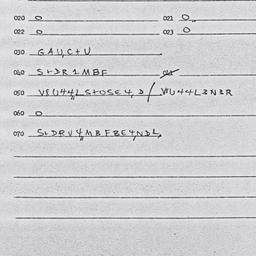 020 0 021 0
022 0 023 0
030 GAU,C+U
040 S+DR1MBF 041
050 V8U44L S+OSE4,D / V8U44L3N3R
060 0
070 S+DRV4MBFBE4NDL